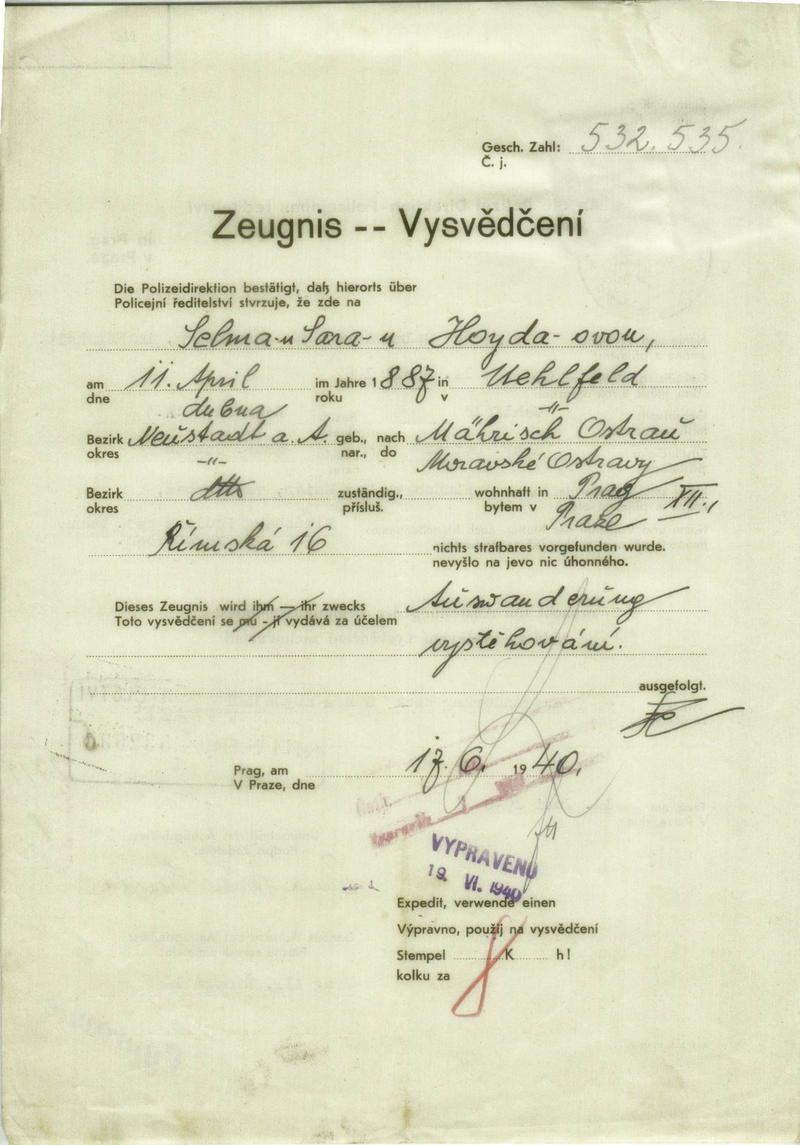 Gesch. Zahl: 532.535.
Č. j.
Zeugnis -- Vysvědčení
Die Polizeidirektion bestätigt, daß hierorts über
Policejní ředitelství stvrzuje, že zde na
Selma-u Sara-u Hoyda-ovou,
am 11. April im Jahre 1887 in Uehlfeld
dne dubna roku v -"-
Bezirk Neustadt a. A. geb., nach Mährisch Ostrau
okres -"- nar., do Moravské Ostravy
Bezirk dtto zuständig., wohnhaft in Prag XII.,
okres přísluš. bytem v Praze
Římská 16 nichts strafbares vorgefunden wurde.
nevyšlo na jevo nic úhonného.
Dieses Zeugnis wird ihm — ihr zwecks Auswanderung
Toto vysvědčení se mu - jí vydává za účelem
vystěhování.
ausgefolgt.
Prag, am 17. 6. 1940.
V Praze, dne
VYPRAVENO
19. VI. 1940
Expedit, verwende einen
Výpravno, použij na vysvědčení
Stempel 8 K h!
kolku za